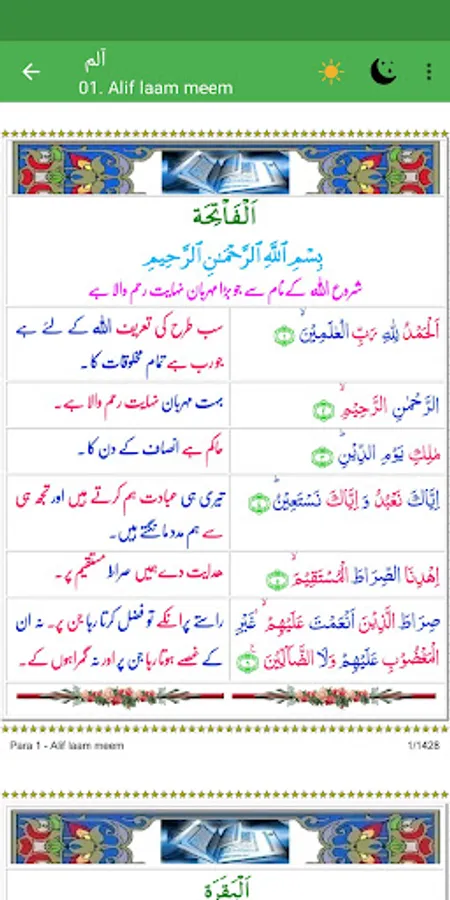 آلم
01. Alif laam meem
اَلْفَاتِحَة
بِسْمِ اللّٰهِ الرَّحْمٰنِ الرَّحِيْمِ
شروع اللہ کے نام سے جو بڑا مہربان نہایت رحم والا ہے
اَلْحَمْدُ لِلّٰهِ رَبِّ الْعٰلَمِيْنَۙ ﴿۱﴾
سب طرح کی تعریف اللہ کے لئے ہے
جو رب ہے تمام مخلوقات کا۔
الرَّحْمٰنِ الرَّحِيْمِۙ ﴿۲﴾
بہت مہربان نہایت رحم والا ہے۔
مٰلِكِ يَوْمِ الدِّيْنِؕ ﴿۳﴾
حاکم ہے انصاف کے دن کا۔
اِيَّاكَ نَعْبُدُ وَ اِيَّاكَ نَسْتَعِيْنُؕ ﴿۴﴾
تیری ہی عبادت ہم کرتے ہیں اور تجھ ہی
سے ہم مدد مانگتے ہیں۔
اِهْدِنَا الصِّرَاطَ الْمُسْتَقِيْمَۙ ﴿۵﴾
ھدایت دے ہمیں صراط مستقیم پر۔
صِرَاطَ الَّذِيْنَ اَنْعَمْتَ عَلَيْهِمْ ۙ۬ غَيْرِ
الْمَغْضُوْبِ عَلَيْهِمْ وَلَا الضَّآلِّيْنَ ﴿۶﴾
راستے پر انکے تو فضل کرتا رہا جن پر۔ نہ ان
کے غصے ہوتا رہا جن پر اور نہ گمراہوں کے۔
Para 1 - Alif laam meem
1/1428
اَلْبَقَرَة